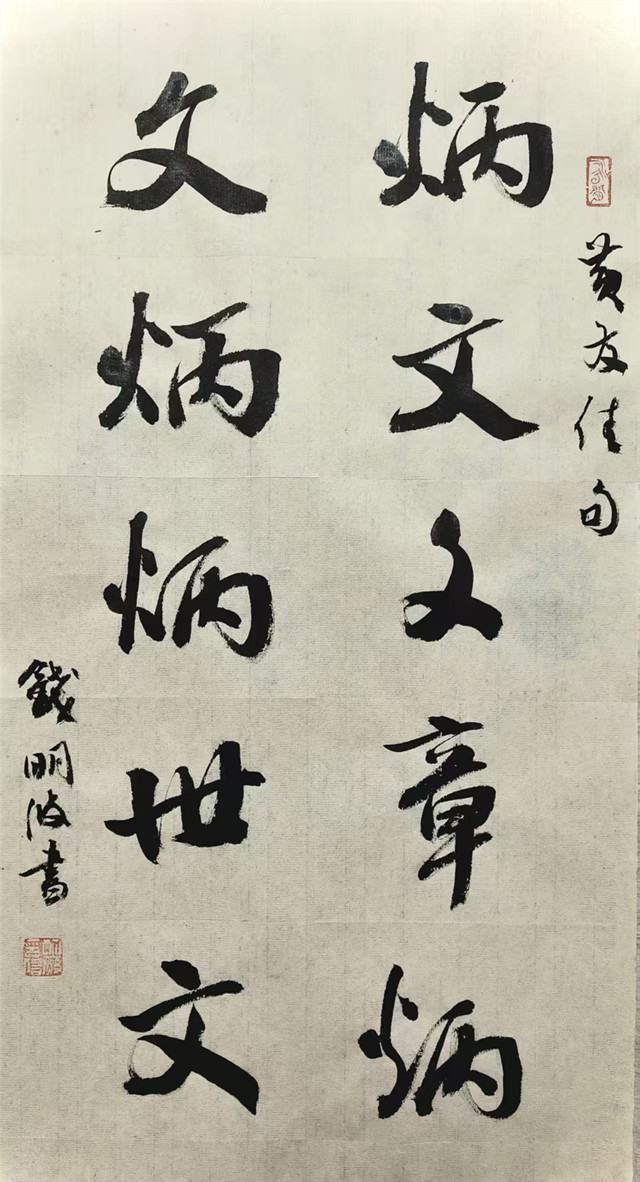 黄友佳句
炳文文章炳
文炳炳世文
钱明波書